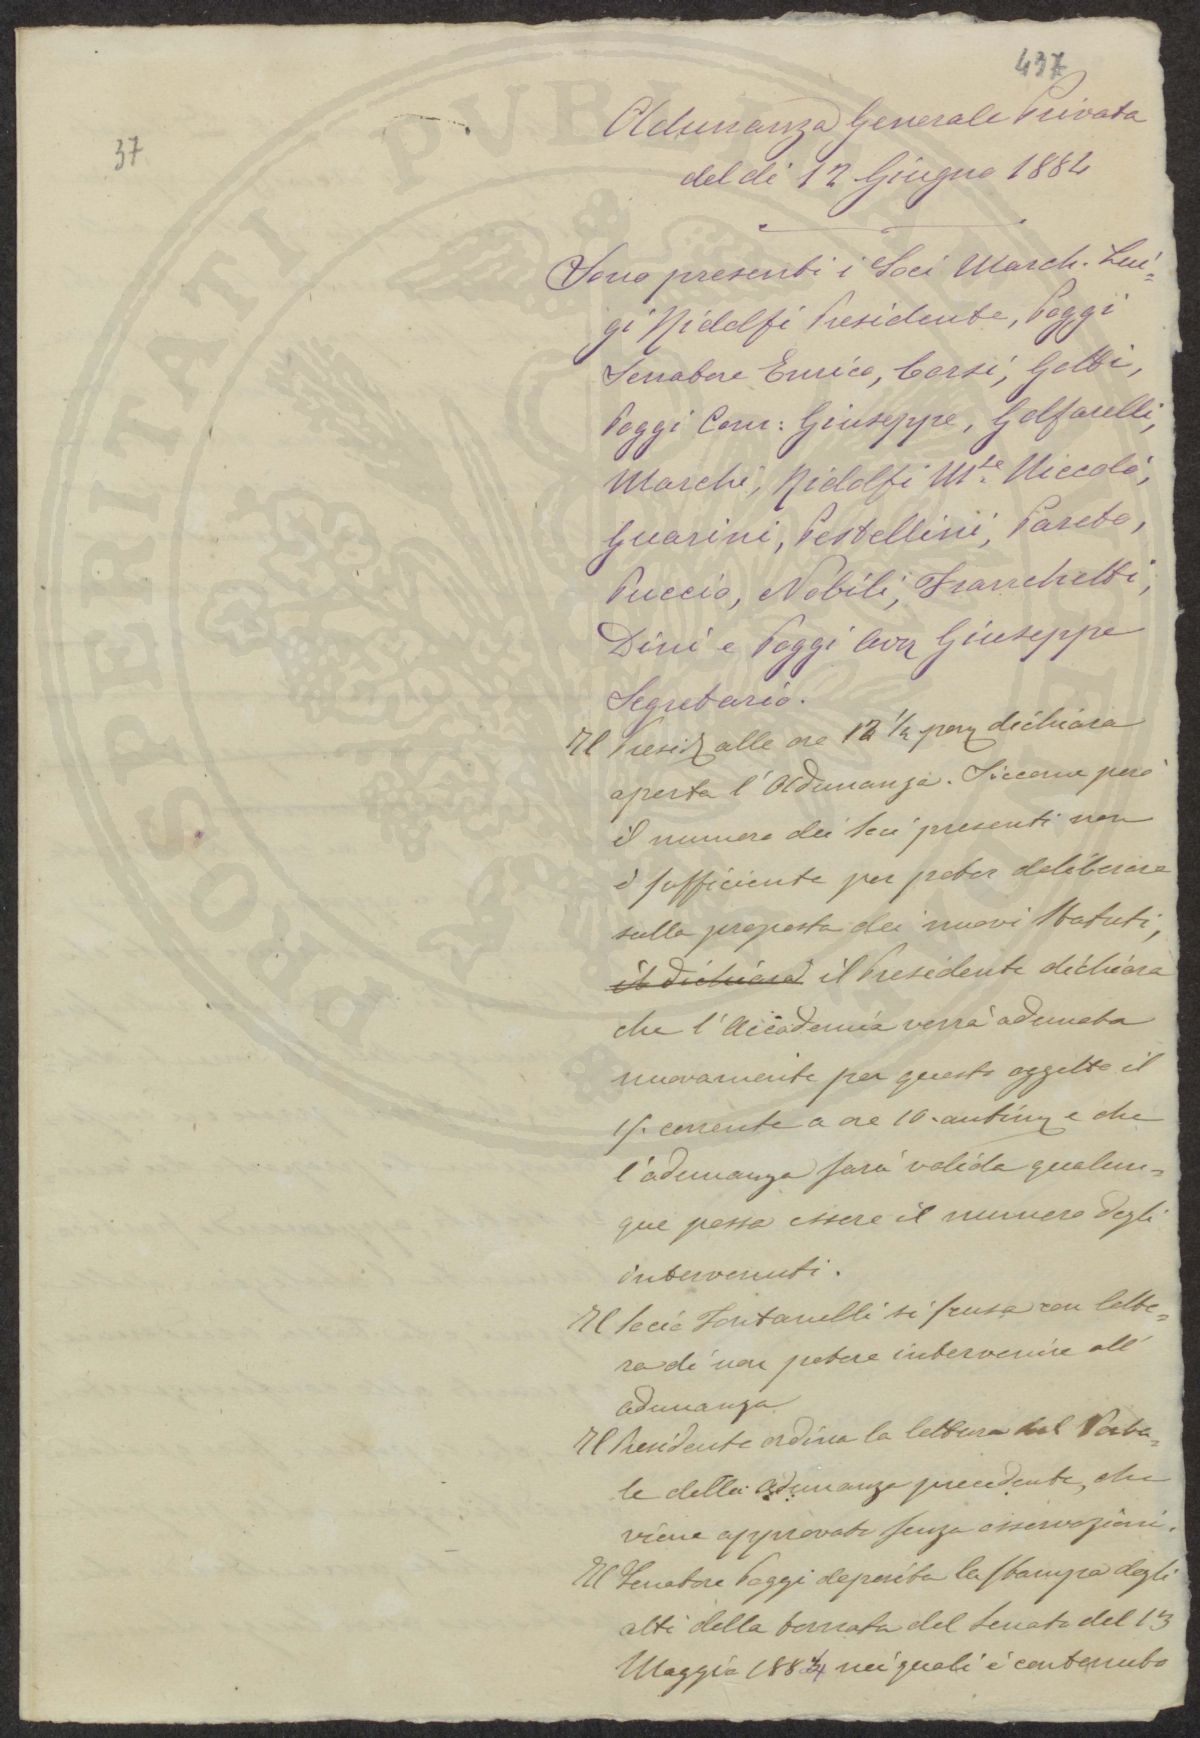 437
37
Adunanza Generale Privata
del dì 12 Giugno 1884
Sono presenti i Soci March. Lui=
gi Ridolfi Presidente, Poggi
Senatore Enrico, Corsi, Gotti,
Poggi Com: Giuseppe, Golfarelli,
Marchi, Ridolfi M.se Niccolò,
Guarini, Pestellini, Pareto,
Puccio, Nobili, Franchetti,
Dini e Poggi Avv Giuseppe
Segretario.
Il Presid alle ore 12 ½ pom dichiara
aperta l'Adunanza. Siccome però
il numero dei Soci presenti non
è sufficiente per poter deliberare
sulla proposta dei nuovi Statuti,
si dichiara il Presidente dichiara
che l'Accademia verrà adunata
nuovamente per questo oggetto il
15. corrente a ore 10. antim e che
l'adunanza sarà valida qualun=
que possa essere il numero degli
intervenuti.
Il Socio Fontanelli si scusa con lette=
ra di non potere intervenire all'
adunanza
Il Presidente ordina la lettura del Verba=
le della adunanza precedente, che
viene approvato senza osservazioni.
Il Senatore Poggi deposita la stampa degli
atti della tornata del Senato del 13
Maggio 1884 nei quali è contenuto
PROSPERITATI PVBLICAE